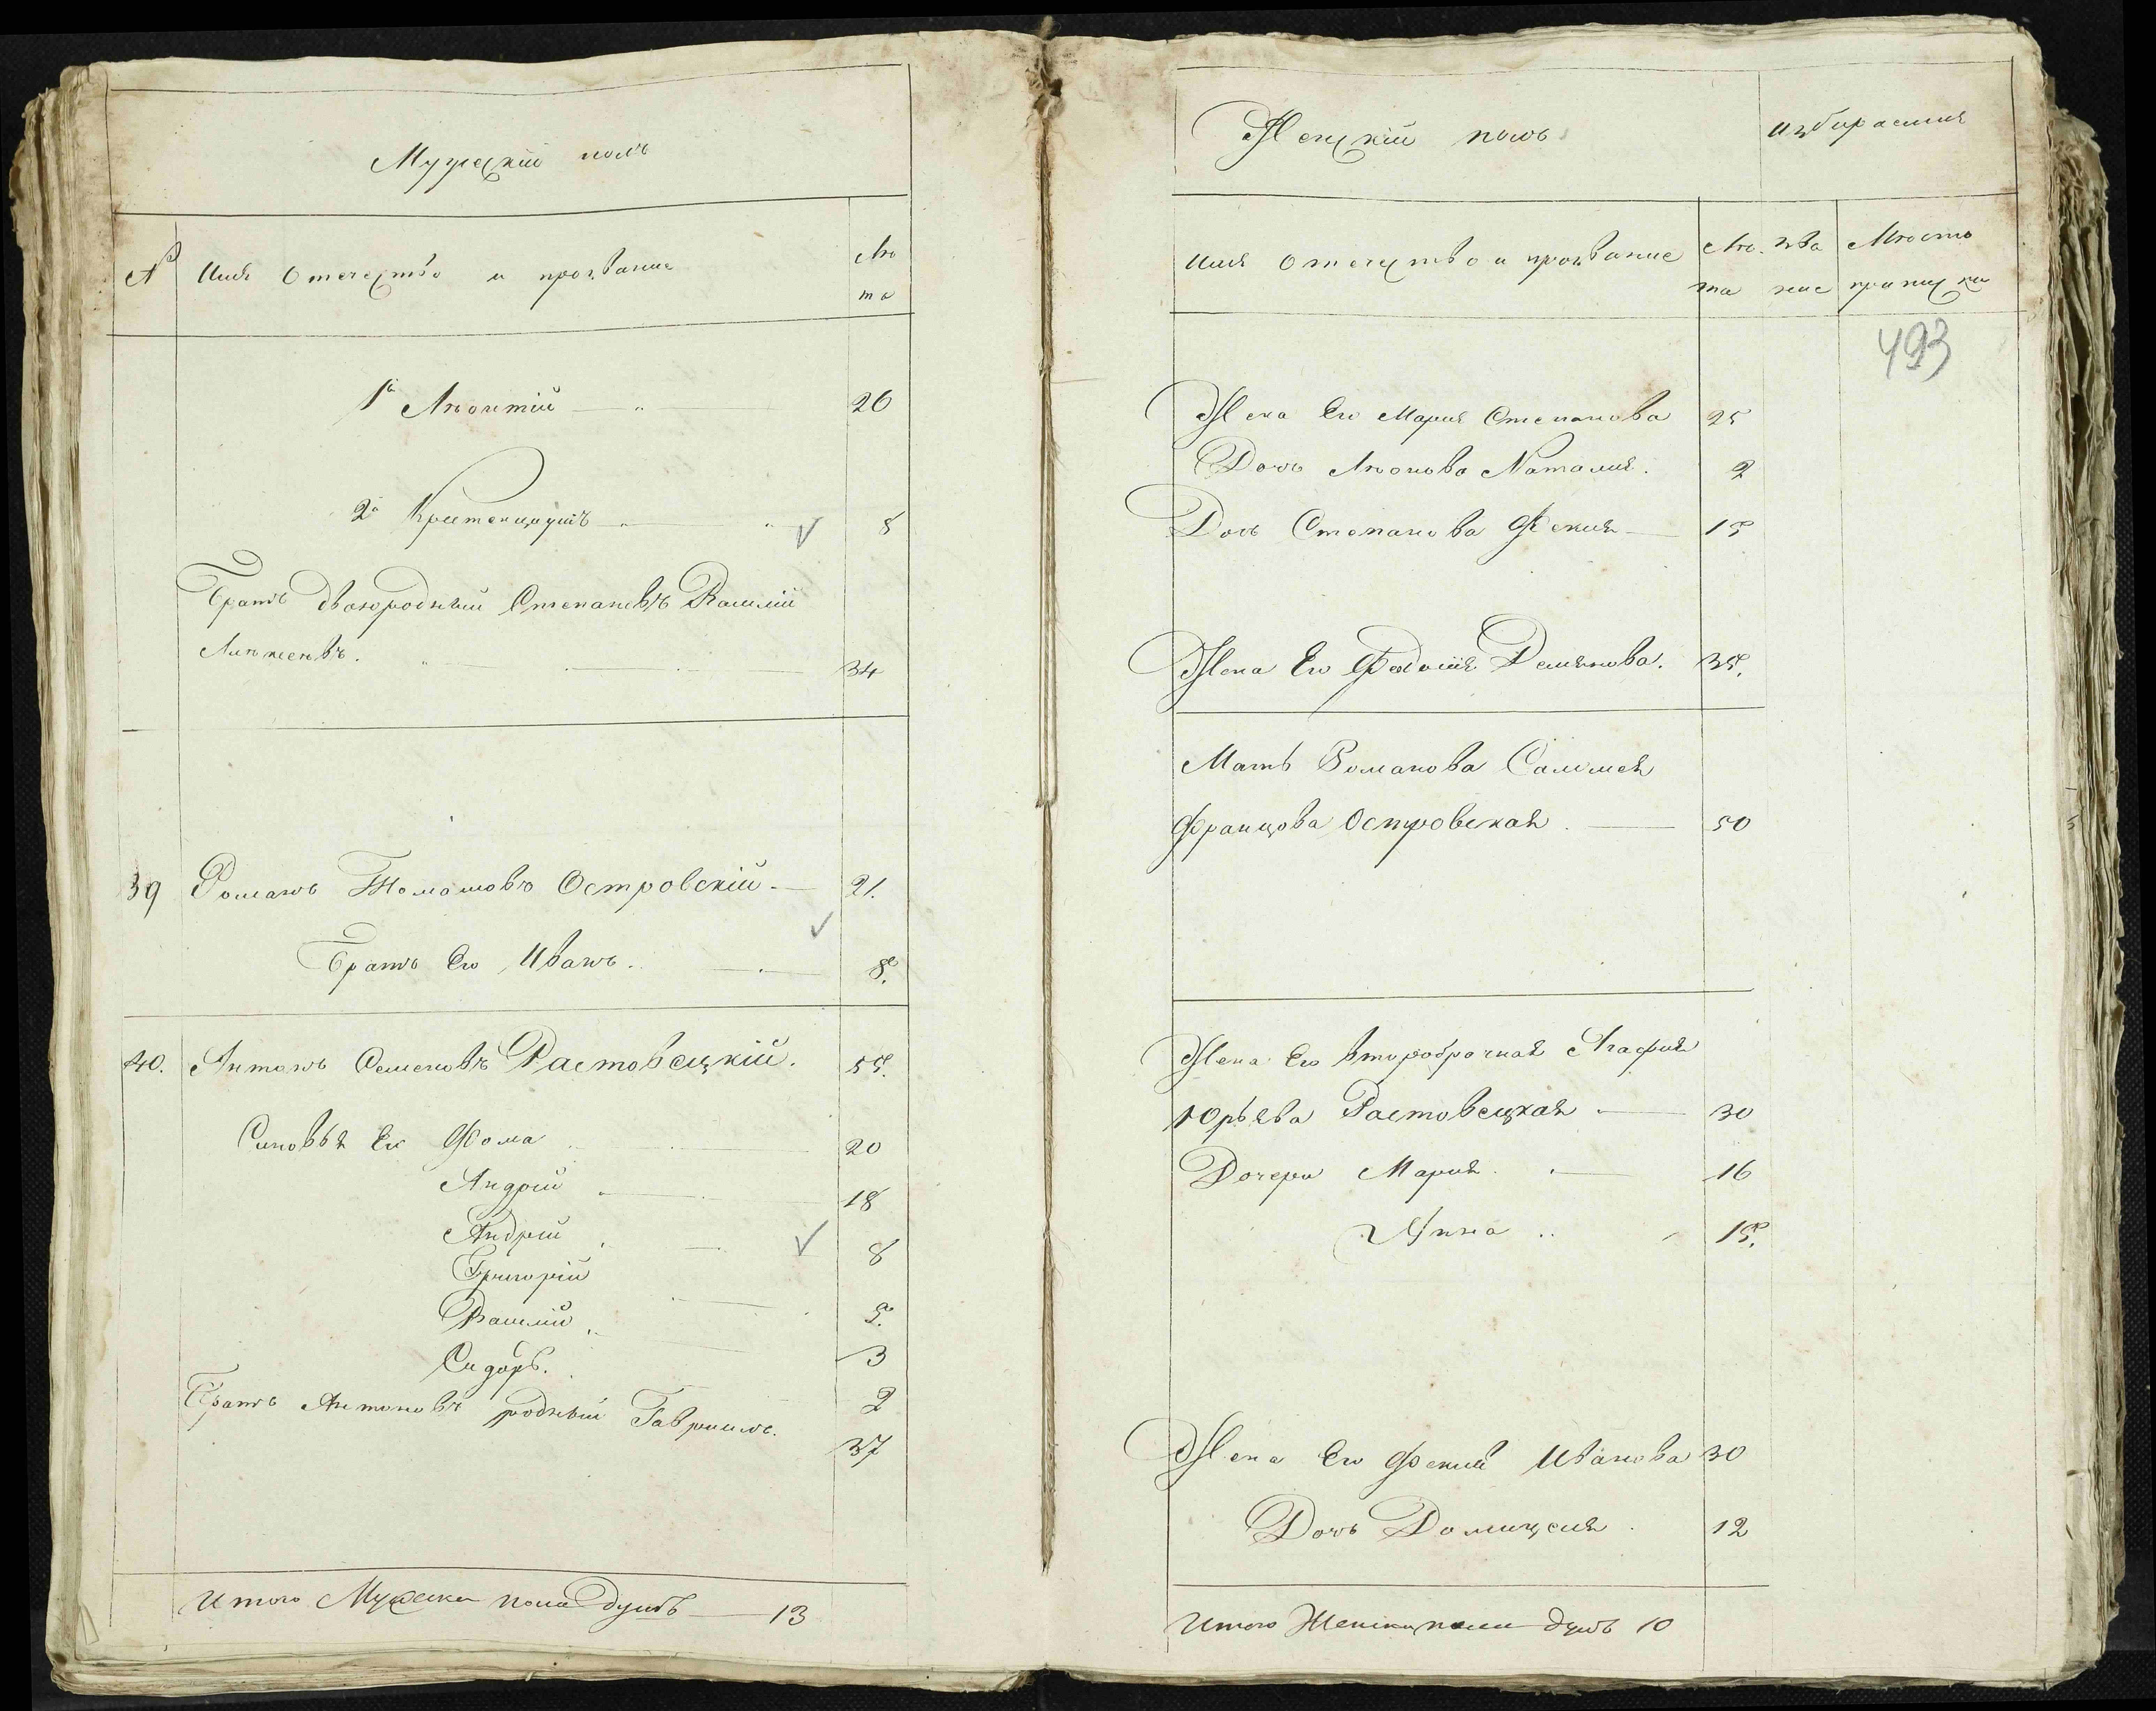 Мужескій полъ
№ Имя Отечество и прозваніе Лѣ
та
1й Лѣонтій 26
2й 8
Братъ двоюродный Степановъ Василій
34
39 Романъ Томашовъ Островскій 21.
Братъ Его Иванъ. 8.
40. Антонъ Семеновъ Растовецкій. 55.
Сыновья Ег Фома 20
Андрій 18
Андрій 8
Григорій
Василій 5.
Сидоръ. 3
Братъ Антоновъ родный Гавриилъ. 2
37
Итого Мужеска пола душъ 13
Женскій полъ
Имя Отечество и прозваніе Лѣ
та
Мѣсто
493
Жена Его Марія Степанова 25
Дочь Лѣонова Наталія. 2
Дочь Степанова Фекия 15
Жена Его Демянова. 35.
Мать Романова Саломея
Францова Островская 50
Жена Его второбрачная Агафия
Юрьева Растовецкая 30
Дочери Марія 16
15.
Жена Его Фекия Иванова 30
Дочь 12
Итого Женска пола душъ 10